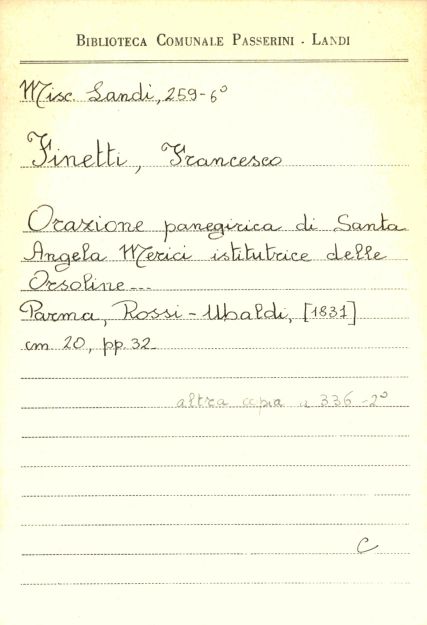 BIBLIOTECA COMUNALE PASSERINI - LANDI
Misc. Landi, 259-6°
Finetti, Francesco
Orazione panegirica di Santa
Angela Merici istitutrice delle
Orsoline---
Parma, Rossi-Ubaldi, [1831]
cm 20, pp. 32-
altra copia a 336-2°
C